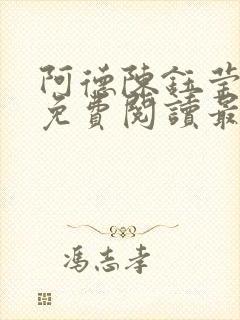 阿德陳鈺瑩
免費閱讀最
馮志孝